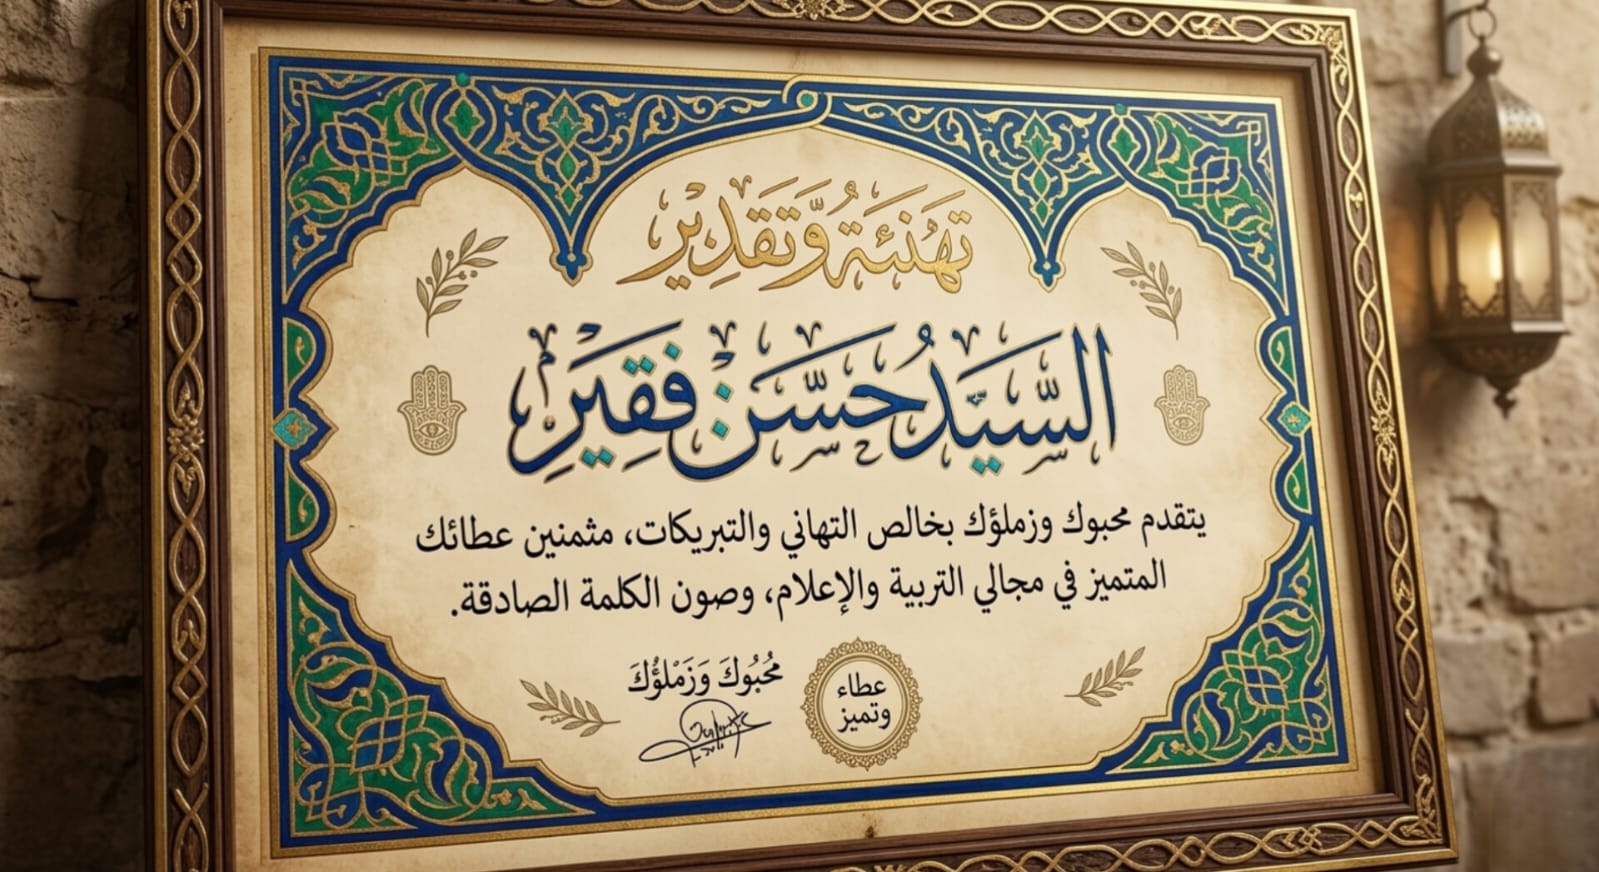 تهنئة وتقدير
السيد حسن فقير
يتقدم محبوك وزملؤك بخالص التهاني والتبريكات، مثمنين عطائك
المتميز في مجالي التربية والإعلام، وصون الكلمة الصادقة.
مُحُبُوكَ وَزَمْلؤُكَ
عطاء
وتميز